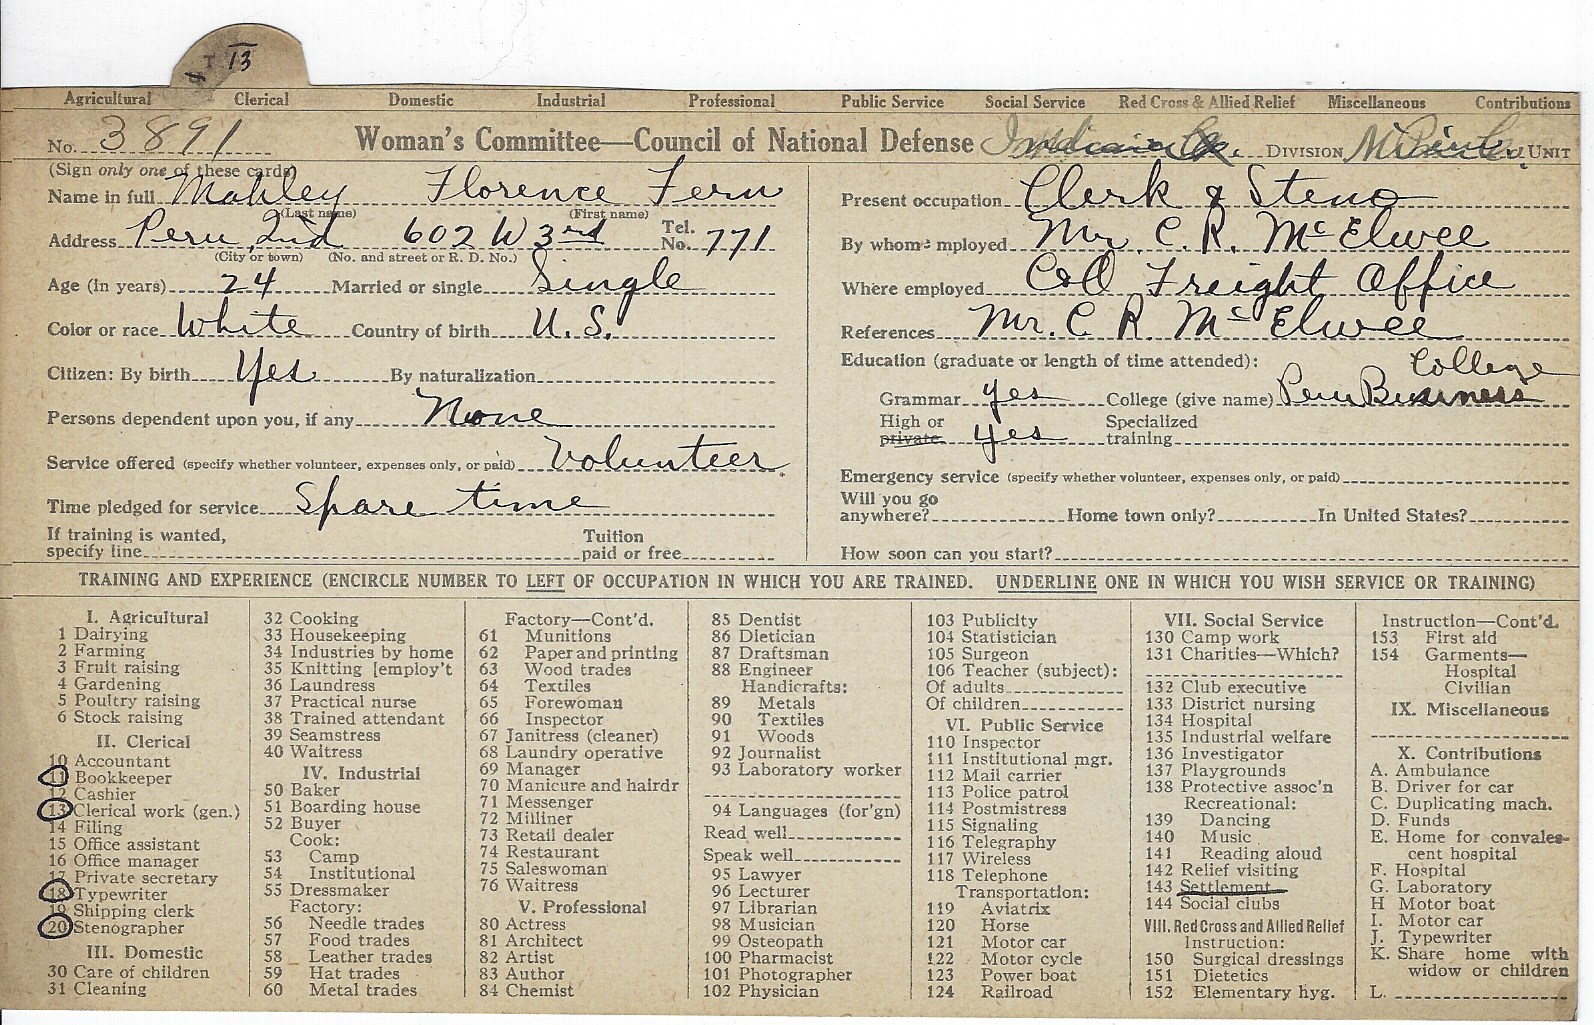 13
Agricultural Clerical Domestic Industrial Professional Public Service Social Service Red Cross & Allied Relief Miscellaneous Contributions
No. 3891 Woman's Committee—Council of National Defense Indiana DIVISION UNIT
(Sign only one of these cards)
Name in full Mahley Florence Fern
(Last name) (First name)
Address Peru, Ind 602 W 3rd Tel. No. 771
(City or town) (No. and street or R. D. No.)
Age (in years) 24 Married or single Single
Color or race White Country of birth U. S.
Citizen: By birth Yes By naturalization
Persons dependent upon you, if any None
Service offered (specify whether volunteer, expenses only, or paid) Volunteer
Time pledged for service Spare time
If training is wanted, specify line Tuition paid or free
Present occupation Clerk & Steno
By whom employed Mr. C. R. McElwee
Where employed C&O Freight Office
References Mr. C. R. McElwee
Education (graduate or length of time attended):
Grammar yes College (give name) Peru Business College
High or private yes Specialized training
Emergency service (specify whether volunteer, expenses only, or paid)
Will you go anywhere? Home town only? In United States?
How soon can you start?
TRAINING AND EXPERIENCE (ENCIRCLE NUMBER TO LEFT OF OCCUPATION IN WHICH YOU ARE TRAINED. UNDERLINE ONE IN WHICH YOU WISH SERVICE OR TRAINING)
I. Agricultural
1 Dairying
2 Farming
3 Fruit raising
4 Gardening
5 Poultry raising
6 Stock raising
II. Clerical
10 Accountant
11 Bookkeeper
12 Cashier
13 Clerical work (gen.)
14 Filing
15 Office assistant
16 Office manager
17 Private secretary
18 Typewriter
19 Shipping clerk
20 Stenographer
III. Domestic
30 Care of children
31 Cleaning
32 Cooking
33 Housekeeping
34 Industries by home
35 Knitting [employ't
36 Laundress
37 Practical nurse
38 Trained attendant
39 Seamstress
40 Waitress
IV. Industrial
50 Baker
51 Boarding house
52 Buyer
Cook:
53 Camp
54 Institutional
55 Dressmaker
Factory:
56 Needle trades
57 Food trades
58 Leather trades
59 Hat trades
60 Metal trades
Factory—Cont'd.
61 Munitions
62 Paper and printing
63 Wood trades
64 Textiles
65 Forewoman
66 Inspector
67 Janitress (cleaner)
68 Laundry operative
69 Manager
70 Manicure and hairdr
71 Messenger
72 Milliner
73 Retail dealer
74 Restaurant
75 Saleswoman
76 Waitress
V. Professional
80 Actress
81 Architect
82 Artist
83 Author
84 Chemist
85 Dentist
86 Dietician
87 Draftsman
88 Engineer
Handicrafts:
89 Metals
90 Textiles
91 Woods
92 Journalist
93 Laboratory worker
94 Languages (for'gn)
Read well
Speak well
95 Lawyer
96 Lecturer
97 Librarian
98 Musician
99 Osteopath
100 Pharmacist
101 Photographer
102 Physician
103 Publicity
104 Statistician
105 Surgeon
106 Teacher (subject):
Of adults
Of children
VI. Public Service
110 Inspector
111 Institutional mgr.
112 Mail carrier
113 Police patrol
114 Postmistress
115 Signaling
116 Telegraphy
117 Wireless
118 Telephone
Transportation:
119 Aviatrix
120 Horse
121 Motor car
122 Motor cycle
123 Power boat
124 Railroad
VII. Social Service
130 Camp work
131 Charities—Which?
132 Club executive
133 District nursing
134 Hospital
135 Industrial welfare
136 Investigator
137 Playgrounds
138 Protective assoc'n
Recreational:
139 Dancing
140 Music
141 Reading aloud
142 Relief visiting
143 Settlement
144 Social clubs
VIII. Red Cross and Allied Relief
Instruction:
150 Surgical dressings
151 Dietetics
152 Elementary hyg.
Instruction—Cont'd.
153 First aid
154 Garments—
Hospital
Civilian
IX. Miscellaneous
X. Contributions
A. Ambulance
B. Driver for car
C. Duplicating mach.
D. Funds
E. Home for convales-
cent hospital
F. Hospital
G. Laboratory
H Motor boat
I. Motor car
J. Typewriter
K. Share home with
widow or children
L.